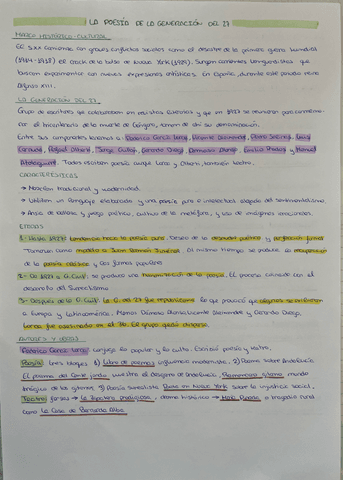 LA POESÍA DE LA GENERACIÓN DEL 27
MARCO HISTÓRICO-CULTURAL
El S.XX comienza con graves conflictos sociales como el desastre de la primera guerra mundial
(1914-1918) el crack de la bolsa de Nueva York (1929). Surgen corrientes vanguardistas que
buscan experimentar con nuevas expresiones artísticas. En España, durante este periodo reina
Alfonso XIII.
LA GENERACIÓN DEL 27
Grupo de escritores que colaboraban en revistas literarias y que en 1927 se reunieron para conmemo-
rar el tricentenario de la muerte de Góngora, toman de ahí su denominación.
Entre sus componentes tenemos a: Federico García Lorca, Vicente Aleixandre, Pedro Salinas, Luis
Cernuda, Rafael Alberti, Jorge Guillén, Gerardo Diego, Dámaso Alonso, Emilio Prados y Manuel
Altolaguirre. Todos escriben poesía aunque Lorca y Alberti, también teatro.
CARACTERÍSTICAS
→ Mezclan tradicional y modernidad.
→ Utilizan un lenguaje elaborado y una poesía pura e intelectual alejada del sentimentalismo.
→ Ansia de belleza y juego poético, cultivo de la metáfora, y uso de imágenes
ETAPAS
1- Hasta 1927: tendencia hacia la poesía pura. Deseo de la deshumanización y perfección formal
Tomaron como modelo a Juan Ramón Jiménez. Al mismo tiempo se produce la recuperación
de la poesía clásica y las formas populares.
2- De 1927 a G. Civil: se produce una rehumanización de la poesía. El proceso coincide con el
desarrollo del Surrealismo.
3- Después de la G. Civil: La G. del 27 fue republicana lo que provocó que algunos se exiliaran
a Europa y Latinoamérica. Menos Dámaso Alonso, Vicente Aleixandre y Gerardo Diego.
Lorca fue asesinado en el 36. El grupo quedó disperso.
AUTORES Y OBRAS
Federico García Lorca: conjuga lo popular y lo culto. Escribió poesía y teatro.
Poesía: tres bloques 1) Libro de poemas influencia modernista. 2) Poema sobre Andalucía
El poema del cante jondo muestra el desgarro de Andalucía. Romancero gitano mundo
trágico de los gitanos. 3) Poesía surrealista Poeta en Nueva York sobre la injusticia social.
Teatro: farsas → La zapatera prodigiosa, drama histórico → Mariana Pineda o tragedia rural
como La Casa de Bernarda Alba.